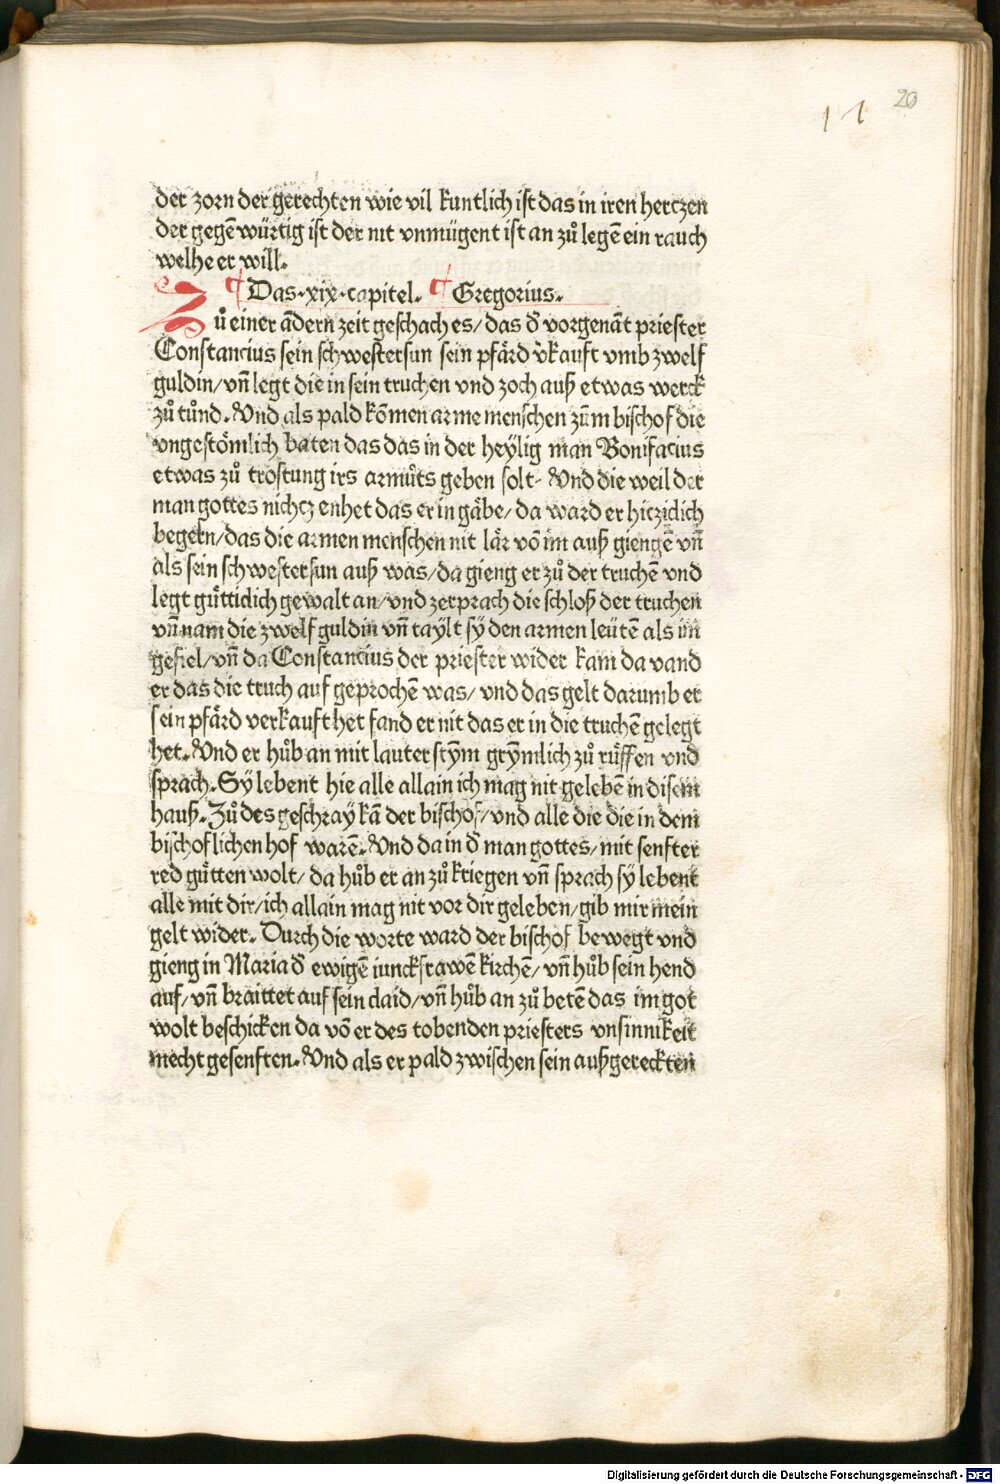 11 20
der zorn der gerechten wie vil kuntlich ist das in iren herczen
der gegēwürtig ist der nit vnmügent ist an zů legē ein rauch
welhe er will.
¶ Das.xix.capitel. ¶ Gregorius.
Zů einer ādern zeit geschach es/ das d̄ vorgenāt priester
Constancius sein schwestersun sein pfärd v̄kauft vmb zwelf
guldin/ vn̄ legt die in sein truchen vnd zoch auß etwas werck
zů tůnd. Vnd als pald kōmen arme menschen zūm bischof die
vngestömlich baten das das in der heÿlig man Bonifacius
etwas zů trostung irs armůts geben solt. Vnd die weil der
man gottes nichcz enhet das er in gäbe/ da ward er hiczidich
begern/ das die armen menschen nit lär vō im auß giengē vn̄
als sein schwestersun auß was/ da gieng er zů der truchē vnd
legt güttidich gewalt an/ vnd zerprach die schloß der truchen
vn̄ nam die zwelf guldin vn̄ taÿlt sÿ den armen leütē als im
gefiel/ vn̄ da Constancius der priester wider kam da vand
er das die truch auf geprochē was/ vnd das gelt darumb er
sein pfärd verkauft het fand er nit das er in die truchē gelegt
het. Vnd er hůb an mit lauter stÿm grÿmlich zů růffen vnd
sprach. Sÿ lebent hie alle allain ich mag nit gelebē in disem
hauß. Zů des geschraÿ kā der bischof/ vnd alle die die in dem
bischoflichen hof warē. Vnd da in d̄ man gottes/ mit senfter
red gütten wolt/ da hůb er an zů kriegen vn̄ sprach sÿ lebent
alle mit dir/ ich allain mag nit vor dir geleben/ gib mir mein
gelt wider. Durch die worte ward der bischof bewegt vnd
gieng in Maria d̄ ewigē iunckfrawē kirchē/ vn̄ hůb sein hend
auf/ vn̄ braittet auf sein claid/ vn̄ hůb an zů betē das im got
wolt beschicken da vō er des tobenden priesters vnsinnikeit
mecht gesenften. Vnd als er pald zwischen sein außgereckten
Digitalisierung gefördert durch die Deutsche Forschungsgemeinschaft - DFG